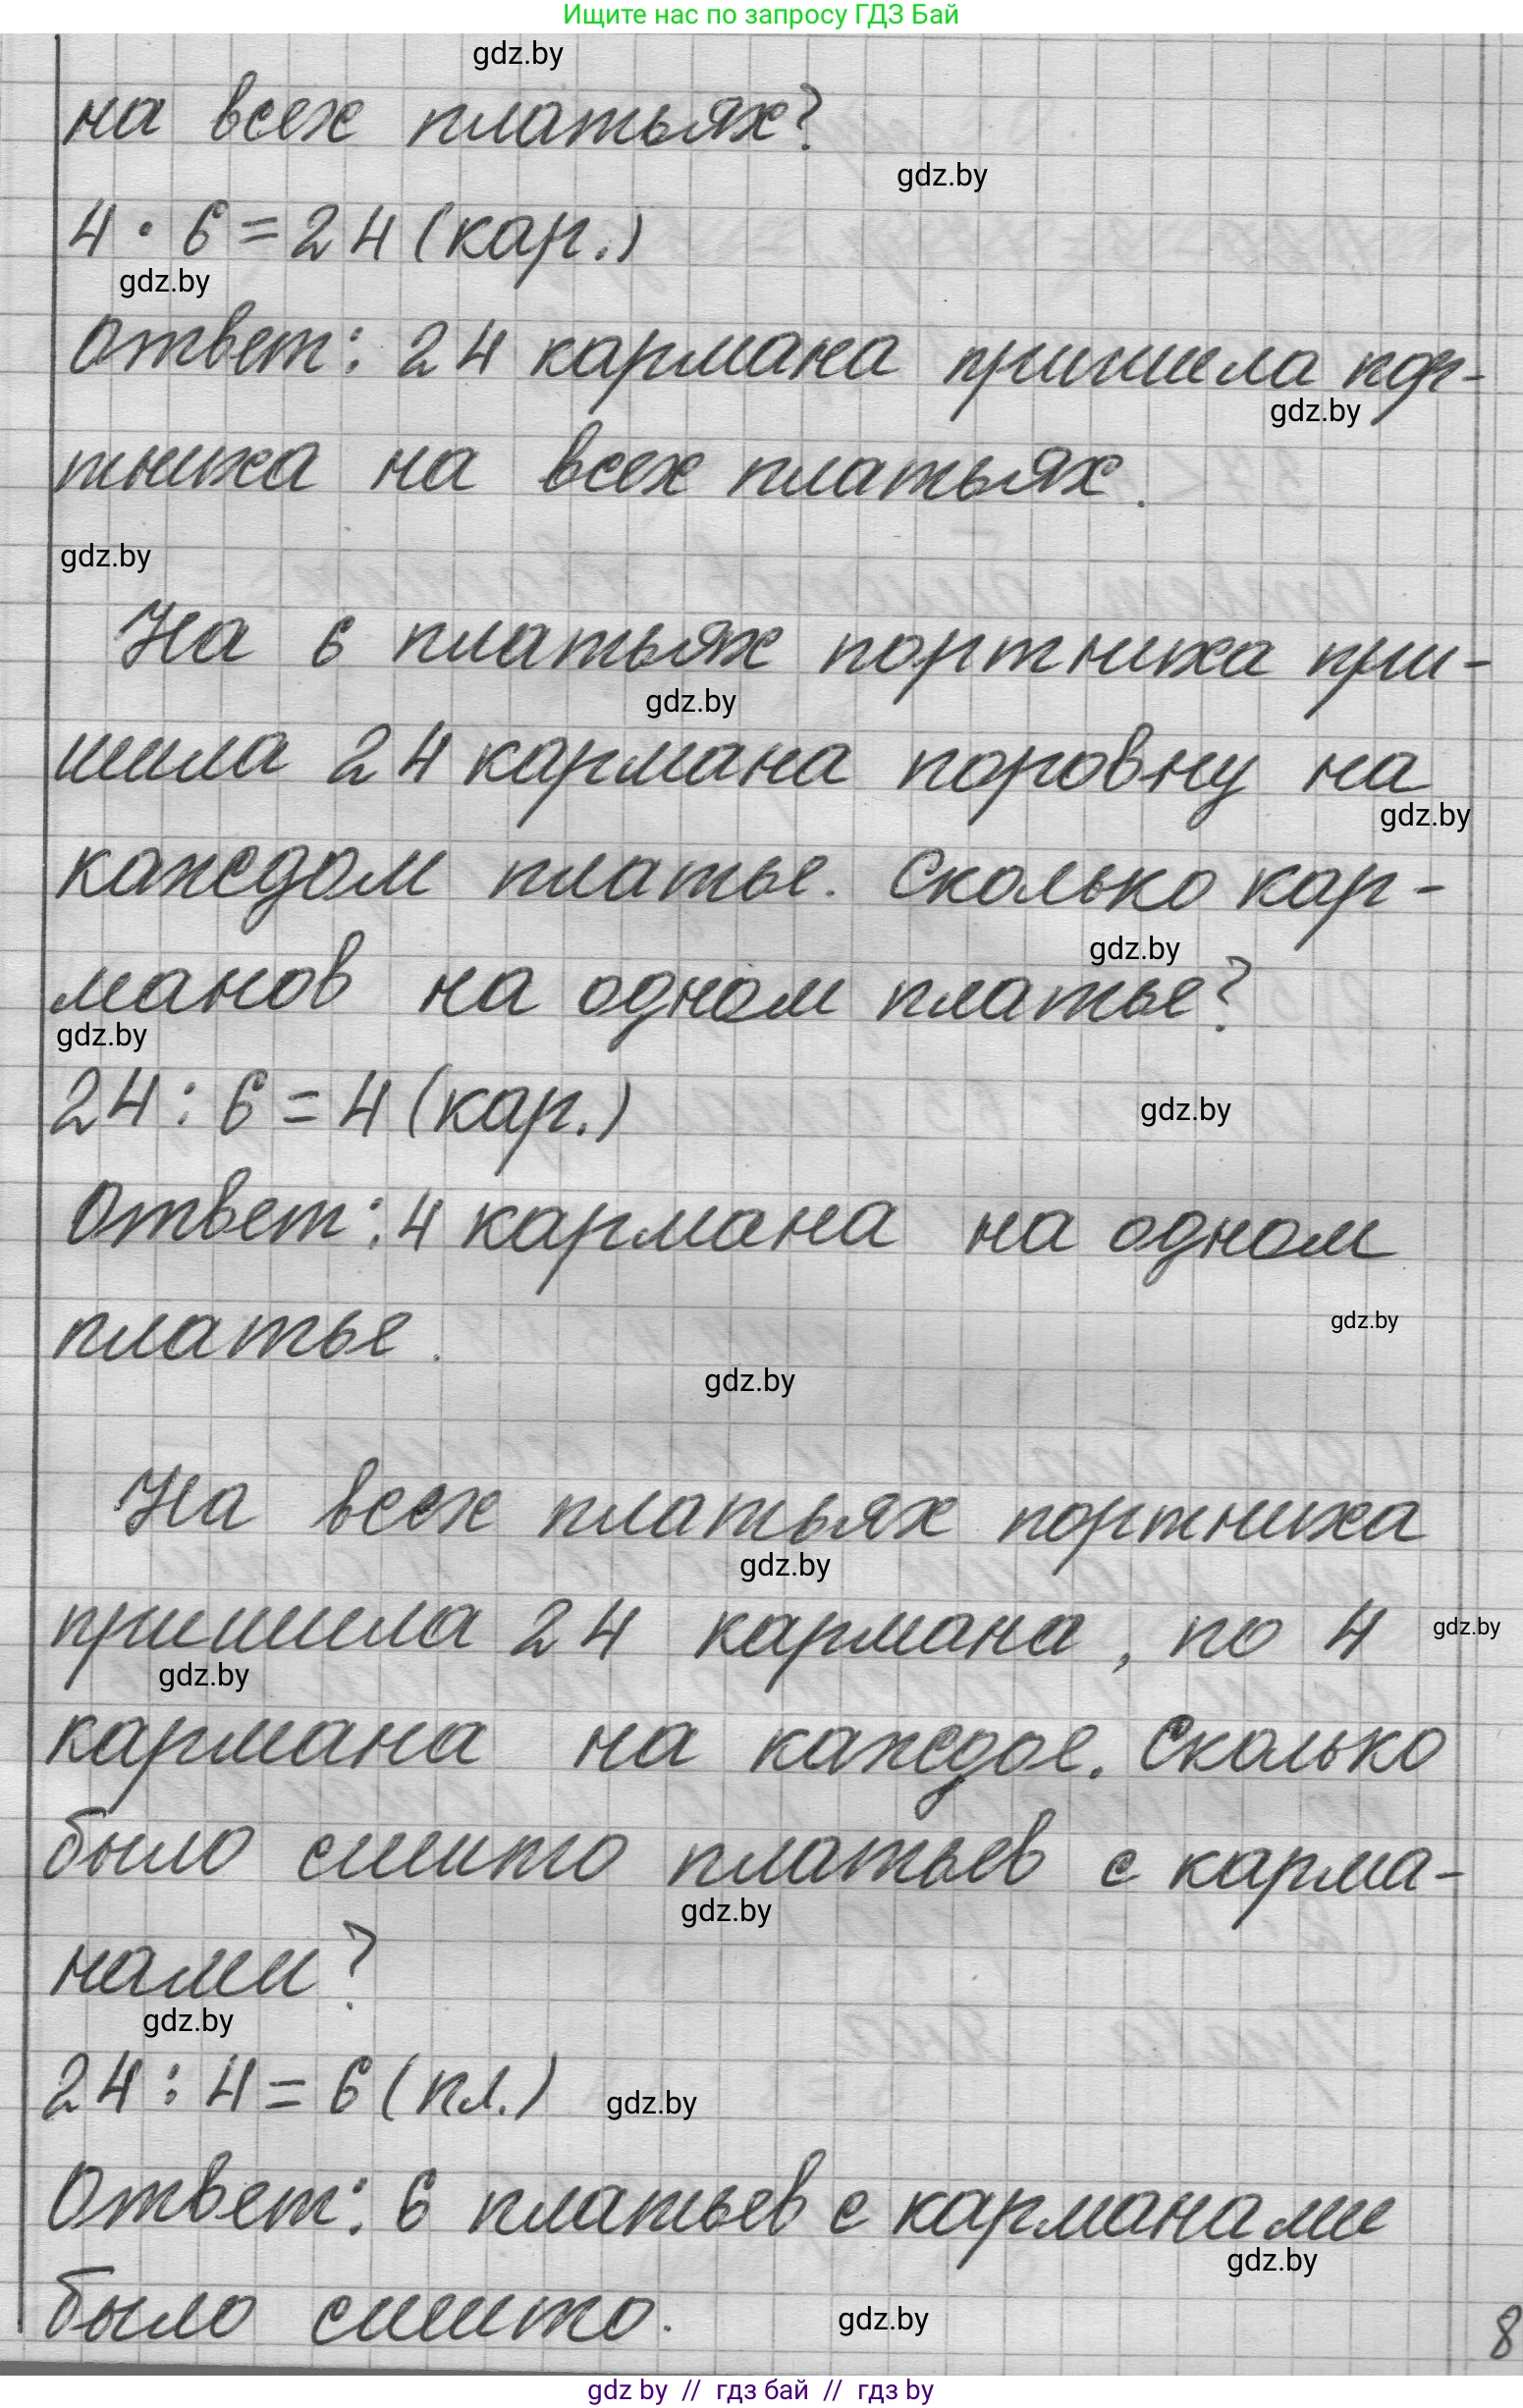 Ищите нас по запросу ГДЗ Бай
gdz.by
на всех платьях?
gdz.by
4 · 6 = 24 (кар.)
gdz.by
Ответ: 24 кармана пришила пор-
gdz.by
тниха на всех платьях.
gdz.by
На 6 платьях портниха при-
gdz.by
шила 24 кармана поровну на
gdz.by
каждом платье. Сколько кар-
gdz.by
манов на одном платье?
gdz.by
24 : 6 = 4 (кар.)
gdz.by
Ответ: 4 кармана на одном
платье.
gdz.by
gdz.by
На всех платьях портниха
gdz.by
пришила 24 кармана, по 4
gdz.by
gdz.by
кармана на каждое. Сколько
было сшито платьев с карма-
gdz.by
нами?
gdz.by
24 : 4 = 6 (пл.)
gdz.by
Ответ: 6 платьев с карманами
gdz.by
было сшито.
gdz.by
8
gdz by // гдз бай // гдз by